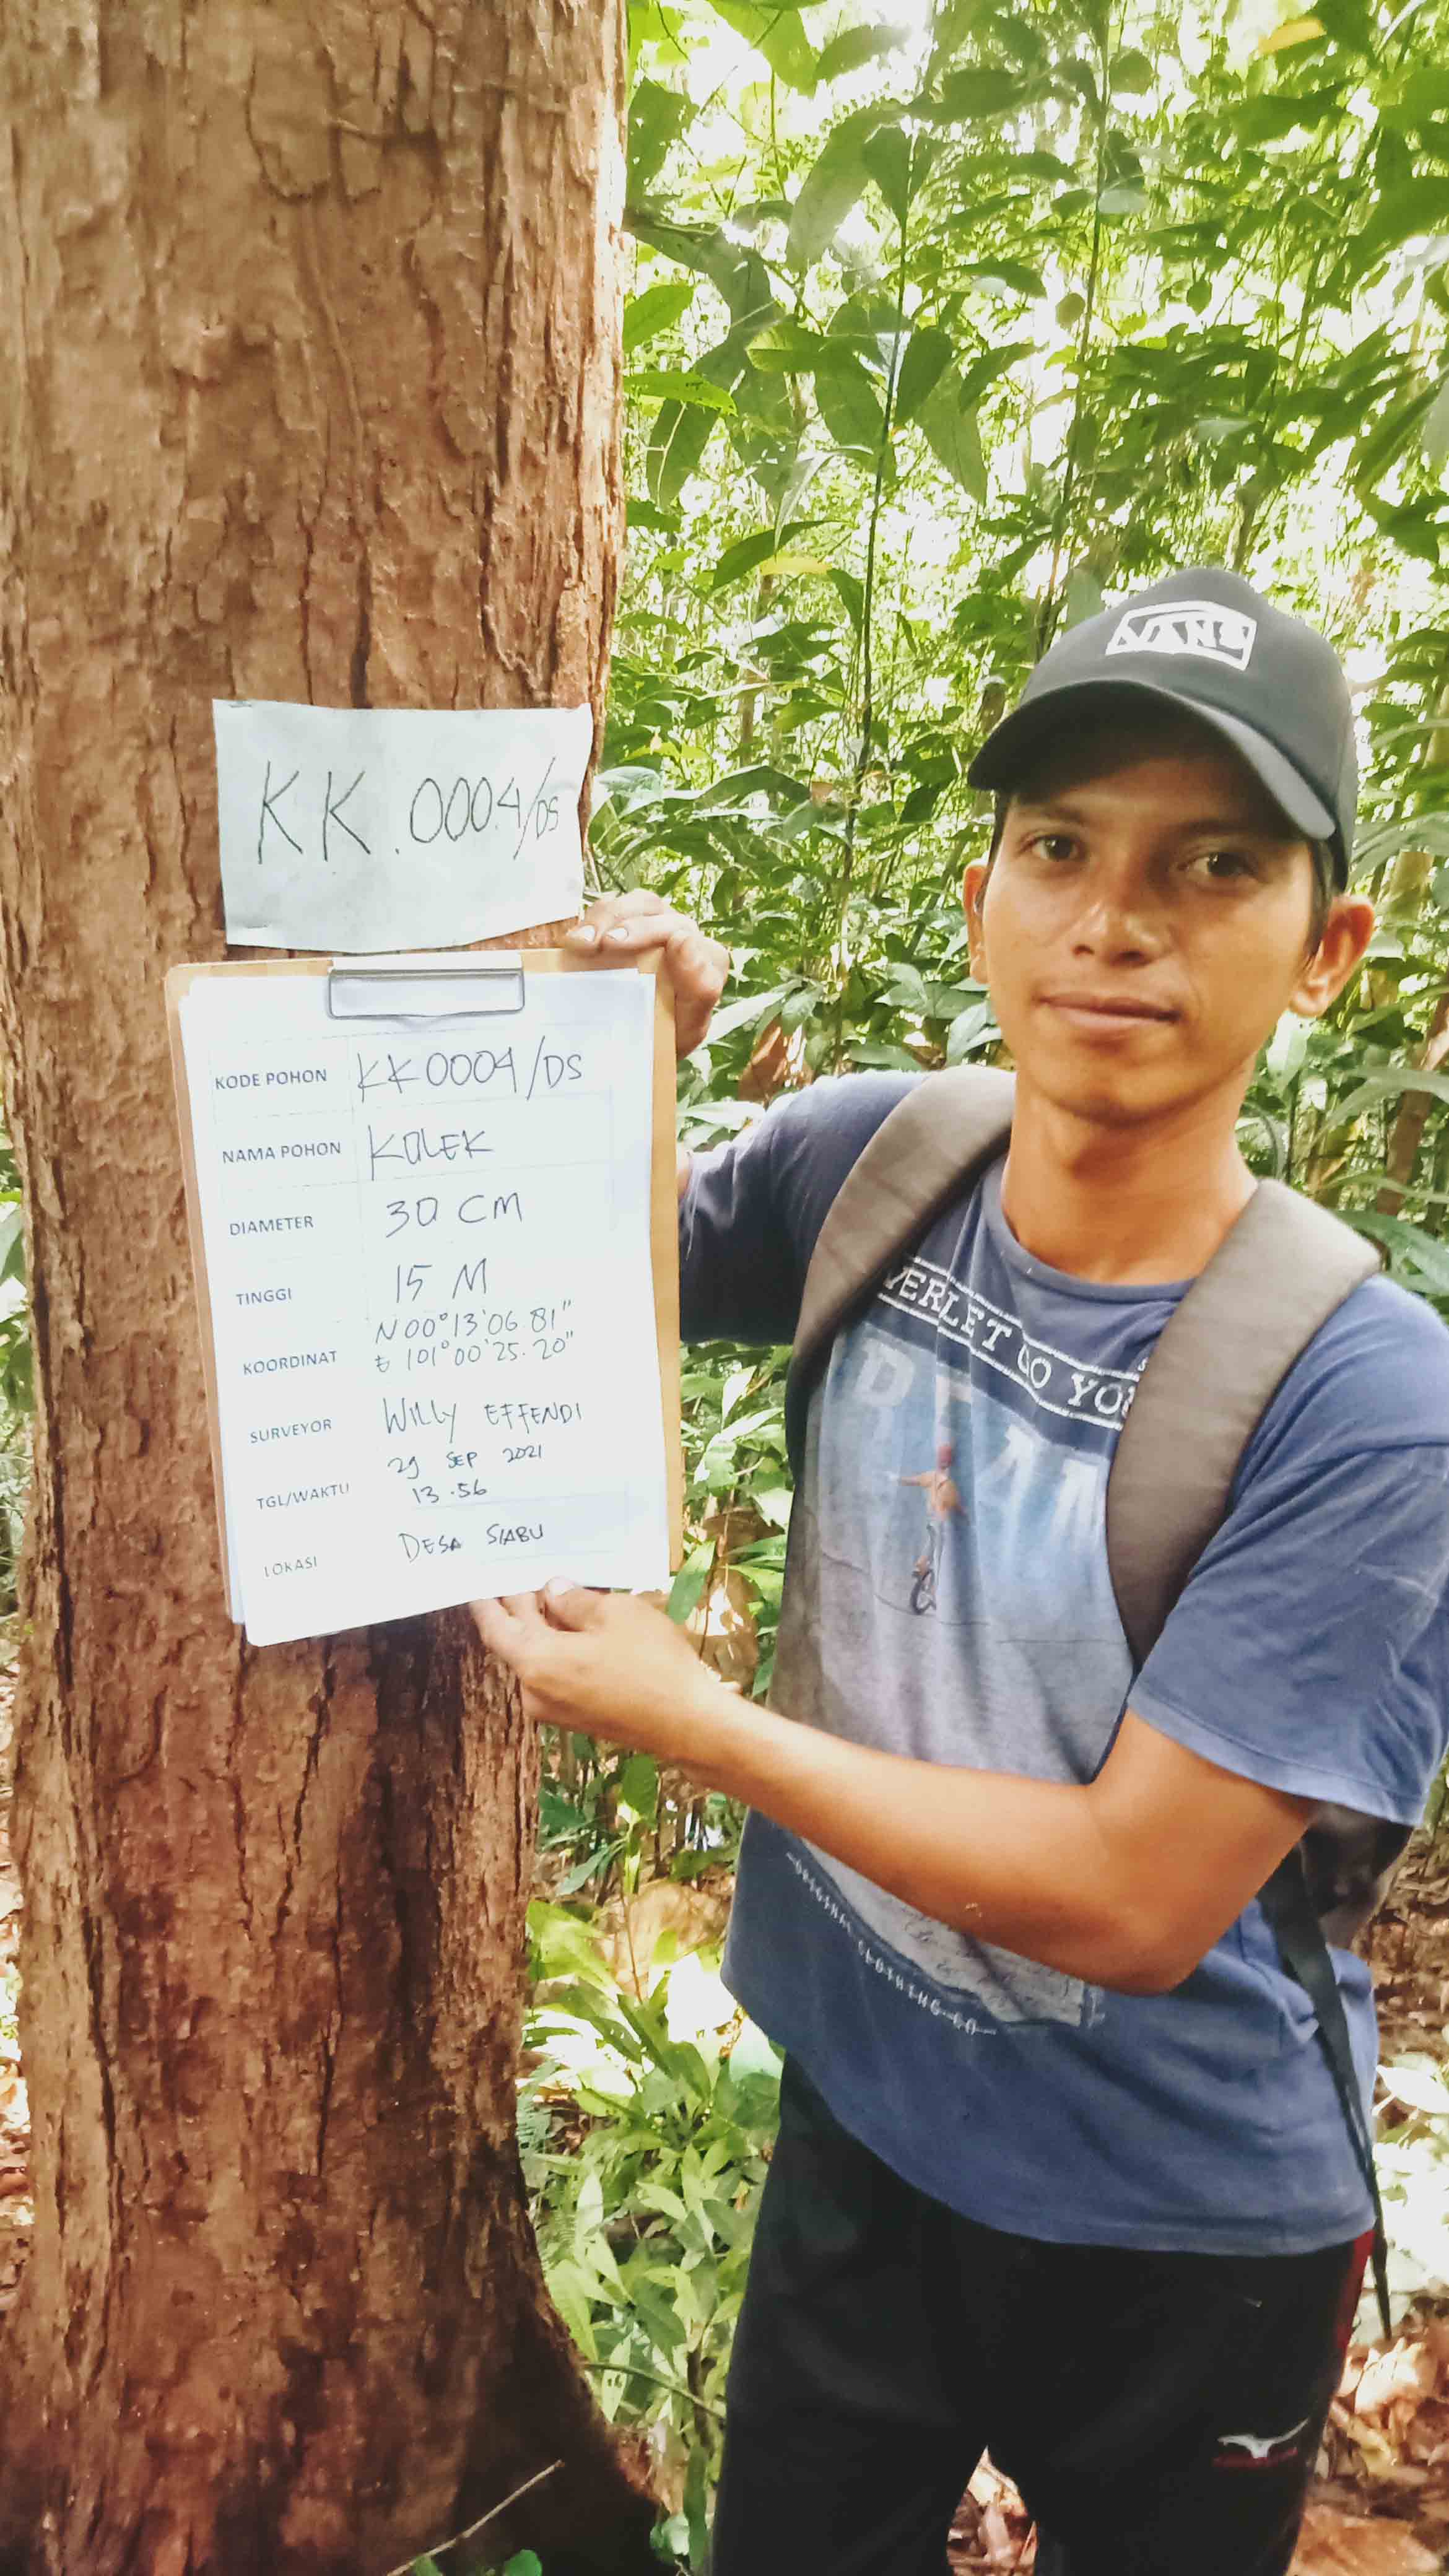 VANS
KK.0004/DS
KODE POHON KK0004/DS
NAMA POHON KOLEK
DIAMETER 30 CM
TINGGI 15 M
KOORDINAT N 00°13'06.81"
E 101°00'25.20"
SURVEYOR WILLY EFFENDI
TGL/WAKTU 29 SEP 2021
13.56
LOKASI DESA SIABU
ORIGINAL CLOTHING CO